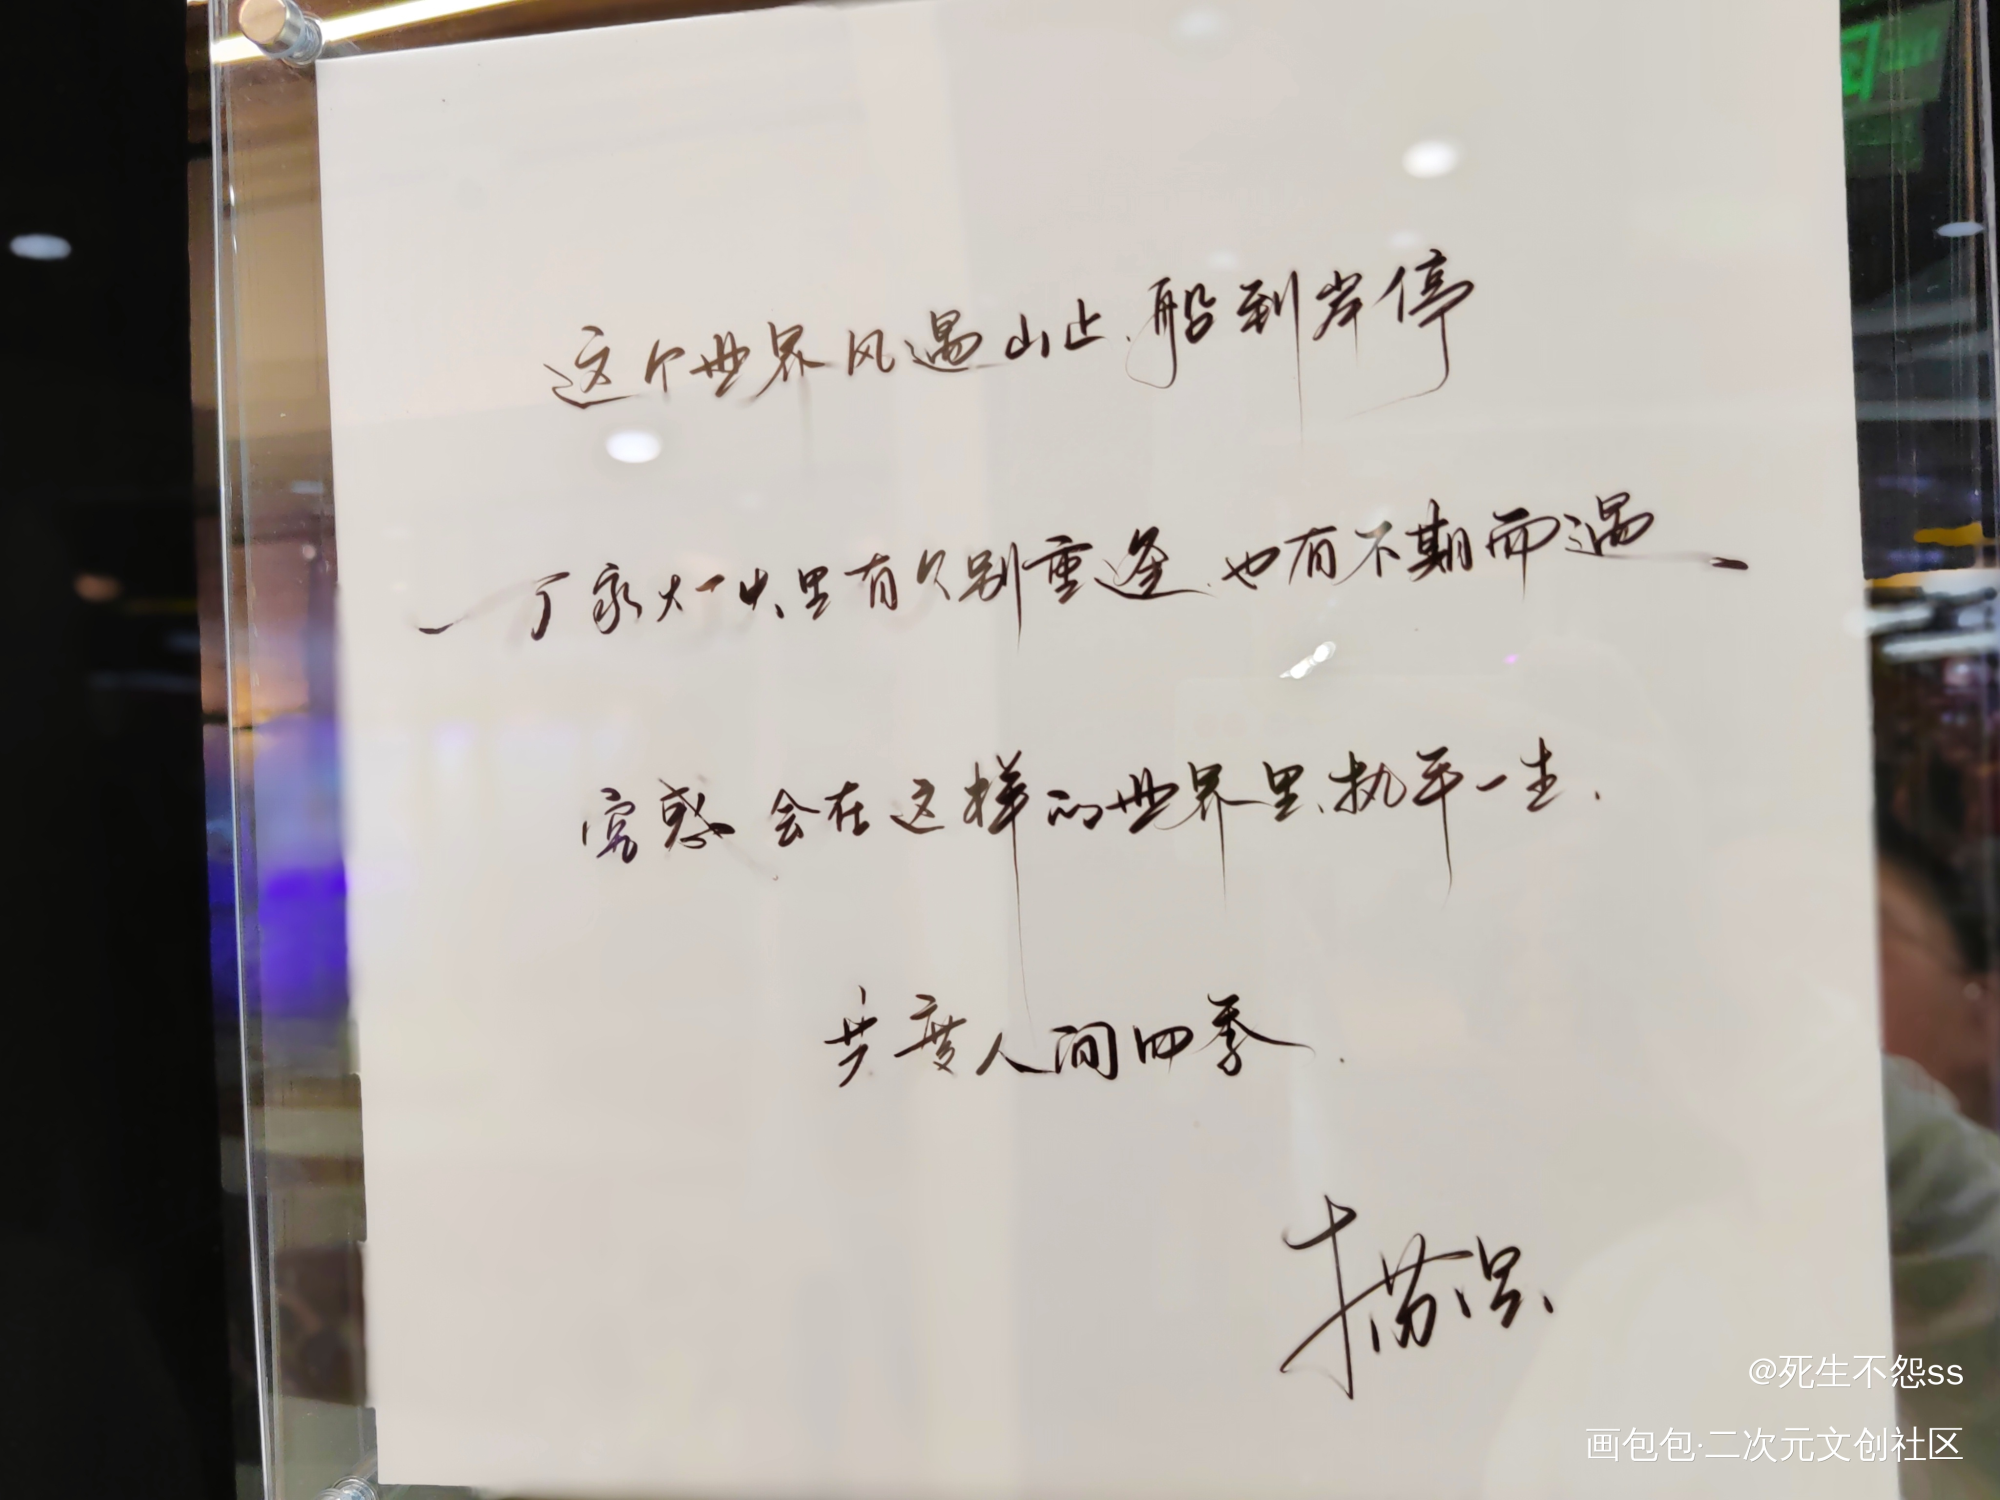 这个世界风遇山止、船到岸停
万家灯火里有久别重逢、也有不期而遇
宫惑会在这样的世界里、执手一生.
共度人间四季.
@死生不怨ss
画包包·二次元文创社区